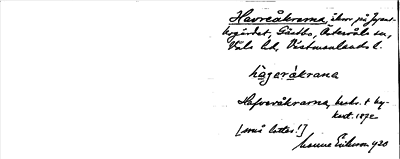 Havreåkrarna, åkrar på Jugansbogärdet, Gästbo, Östervåla sn,
Våla hd, Västmanlands l.
hågəråkrana
Hafreråkrarna, beskr. t by-
kart. 1872
[små lotter!]
Manne Eriksson 1930